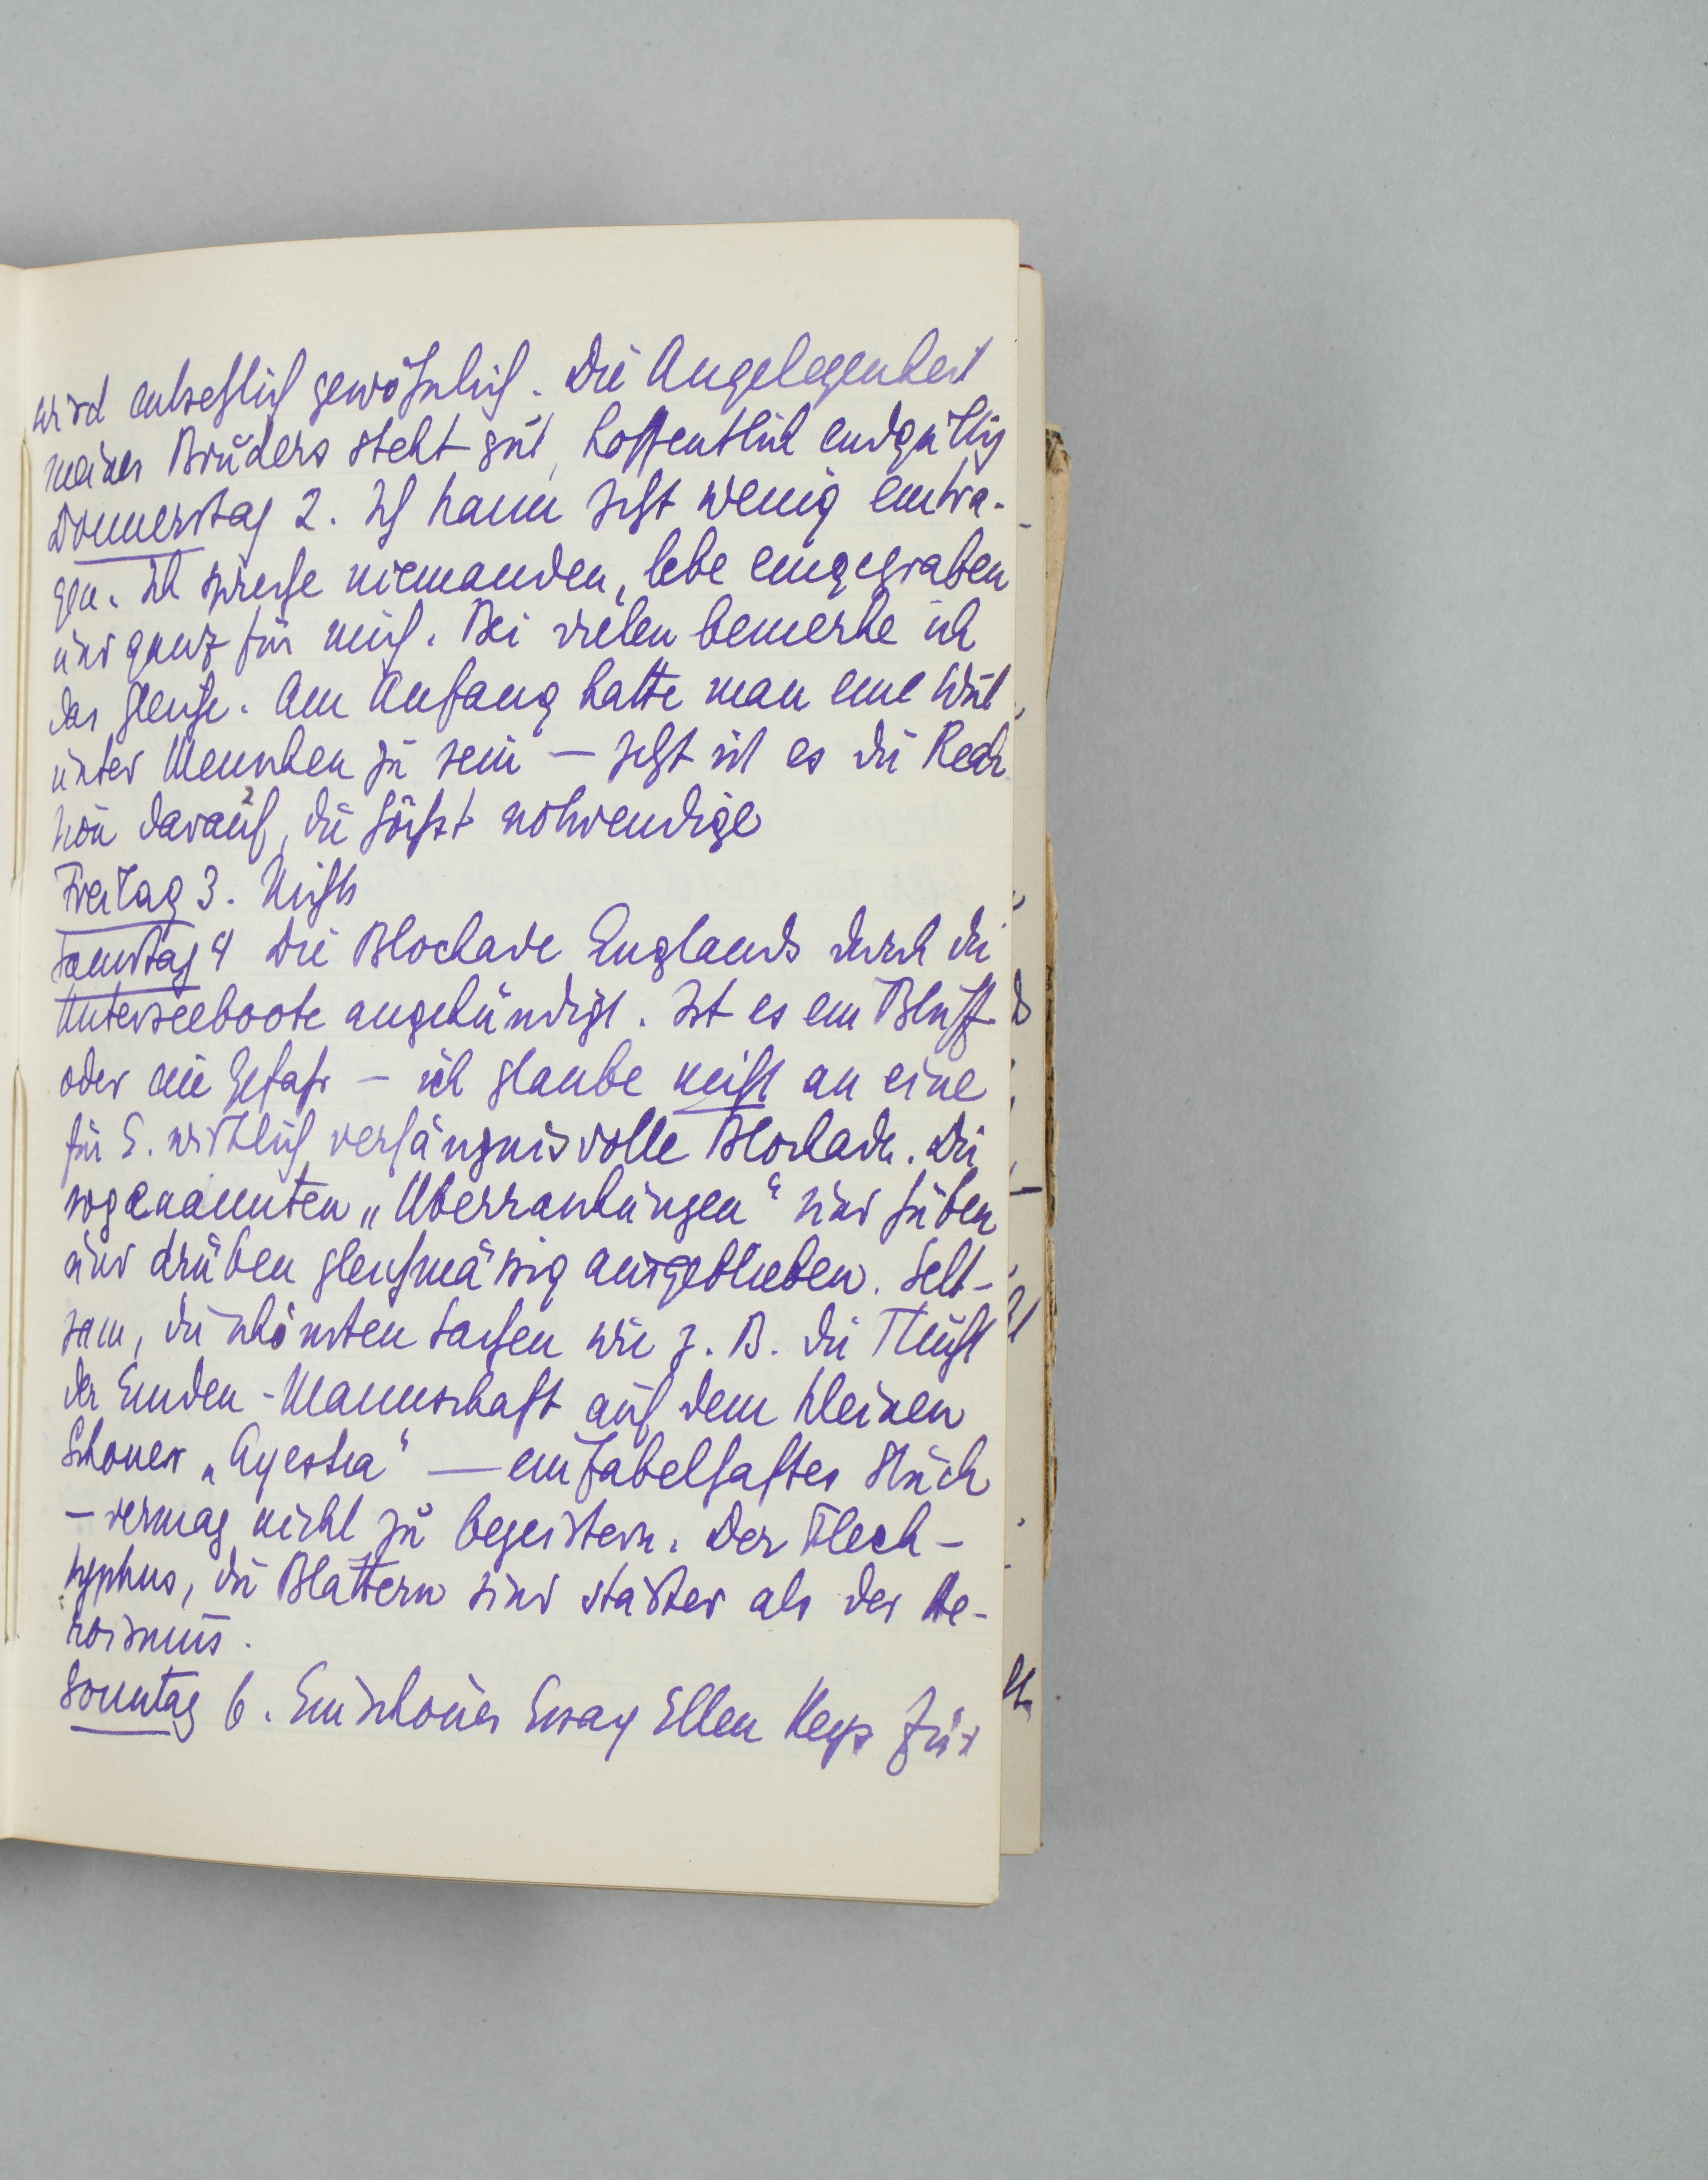 wird entsetzlich gewöhnlich. Die Angelegenheit
meines Bruders steht gut, hoffentlich endgültig
Donnerstag 2. Ich kann jetzt wenig eintra-
gen. Ich spreche niemanden, lebe eingegraben
und ganz für mich. Bei vielen bemerke ich
das gleiche. Am Anfang hatte man eine Wut
unter Menschen zu sein – jetzt ist es die Reak
tion darauf, die höchst notwendige
Freitag 3. Nichts
Samstag 4 Die Blockade Englands durch die
Unterseeboote angekündigt. Ist es ein Bluff
oder eine Gefahr – ich glaube nicht an eine
für E. wirklich verhängnisvolle Blockade. Die
sogenannten „Überraschungen“ sind hüben
und drüben gleichmässig ausgeblieben. Selt-
sam, die schönsten Sachen wie z. B. die Flucht
der Emden-Mannschaft auf dem kleinen
Schoner „Ayesha“ — ein fabelhaftes Stück
– vermag nicht zu begeistern. Der Fleck-
typhus, die Blattern sind stärker als der He-
roismus.
Sonntag 6. Ein schönes Essay Ellen Keys für